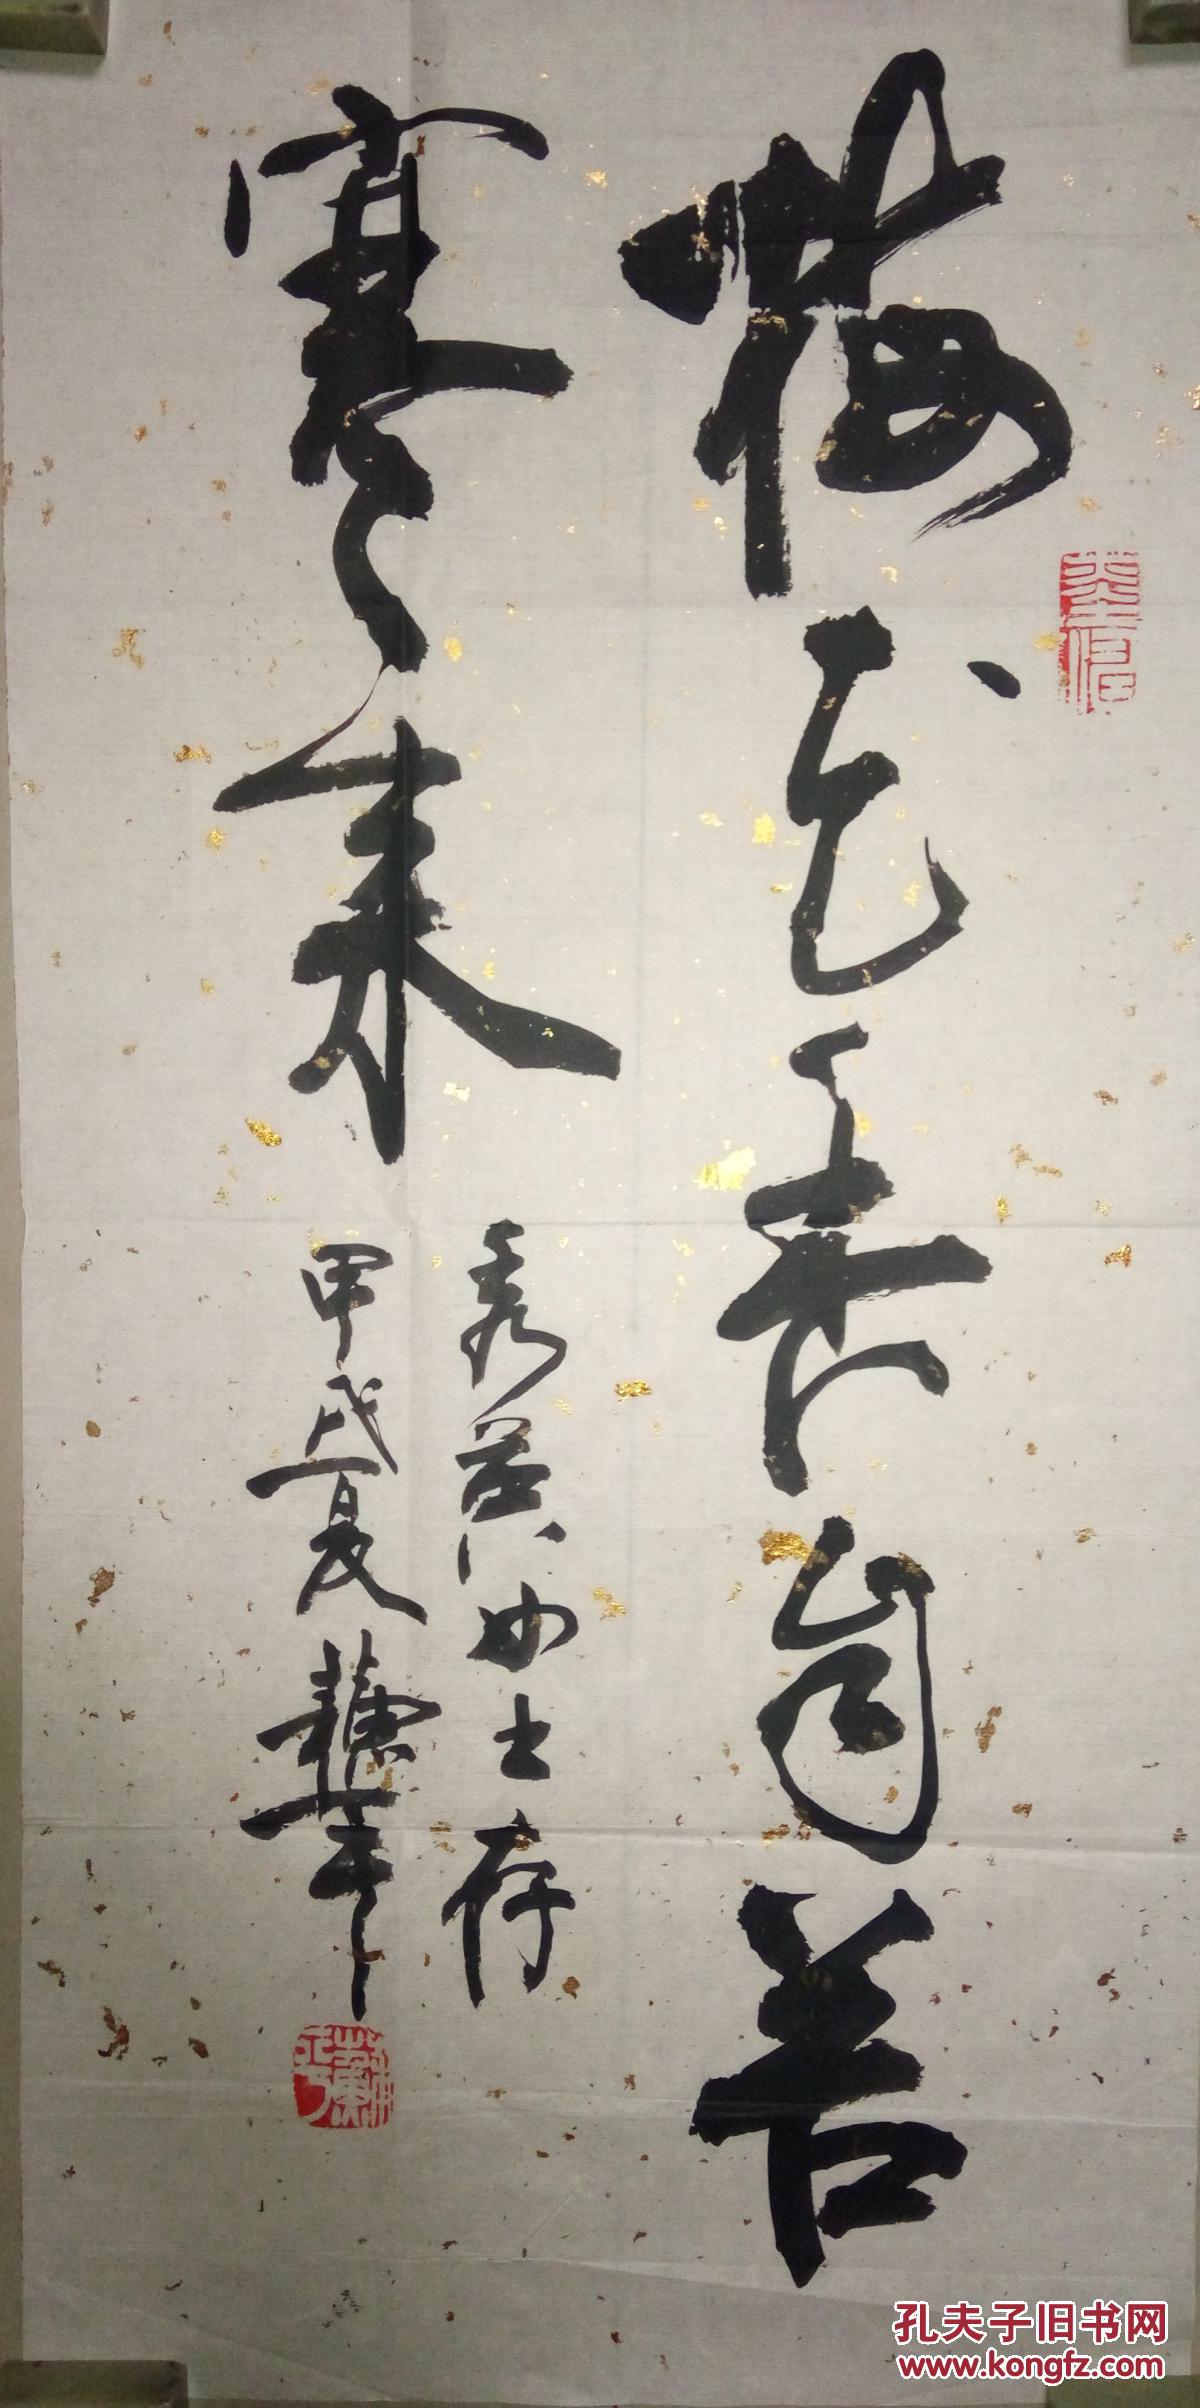 梅花香自苦
寒来
秀英女士存
甲戌夏
孔夫子旧书网
www.kongfz.com